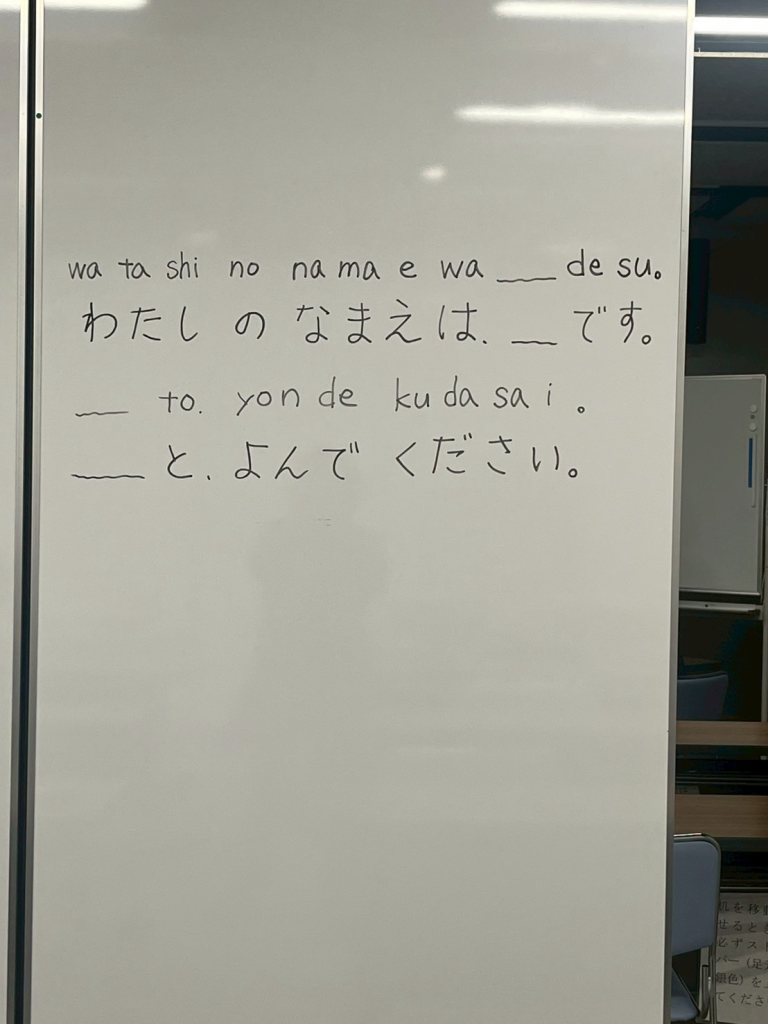 wa ta shi no na ma e wa ___ de su。
わたし の なまえは. __ です。
___ to. yon de ku da sa i 。
___ と. よんで ください。
せると
必ずスト
バー(足
銀色)を
てくださ